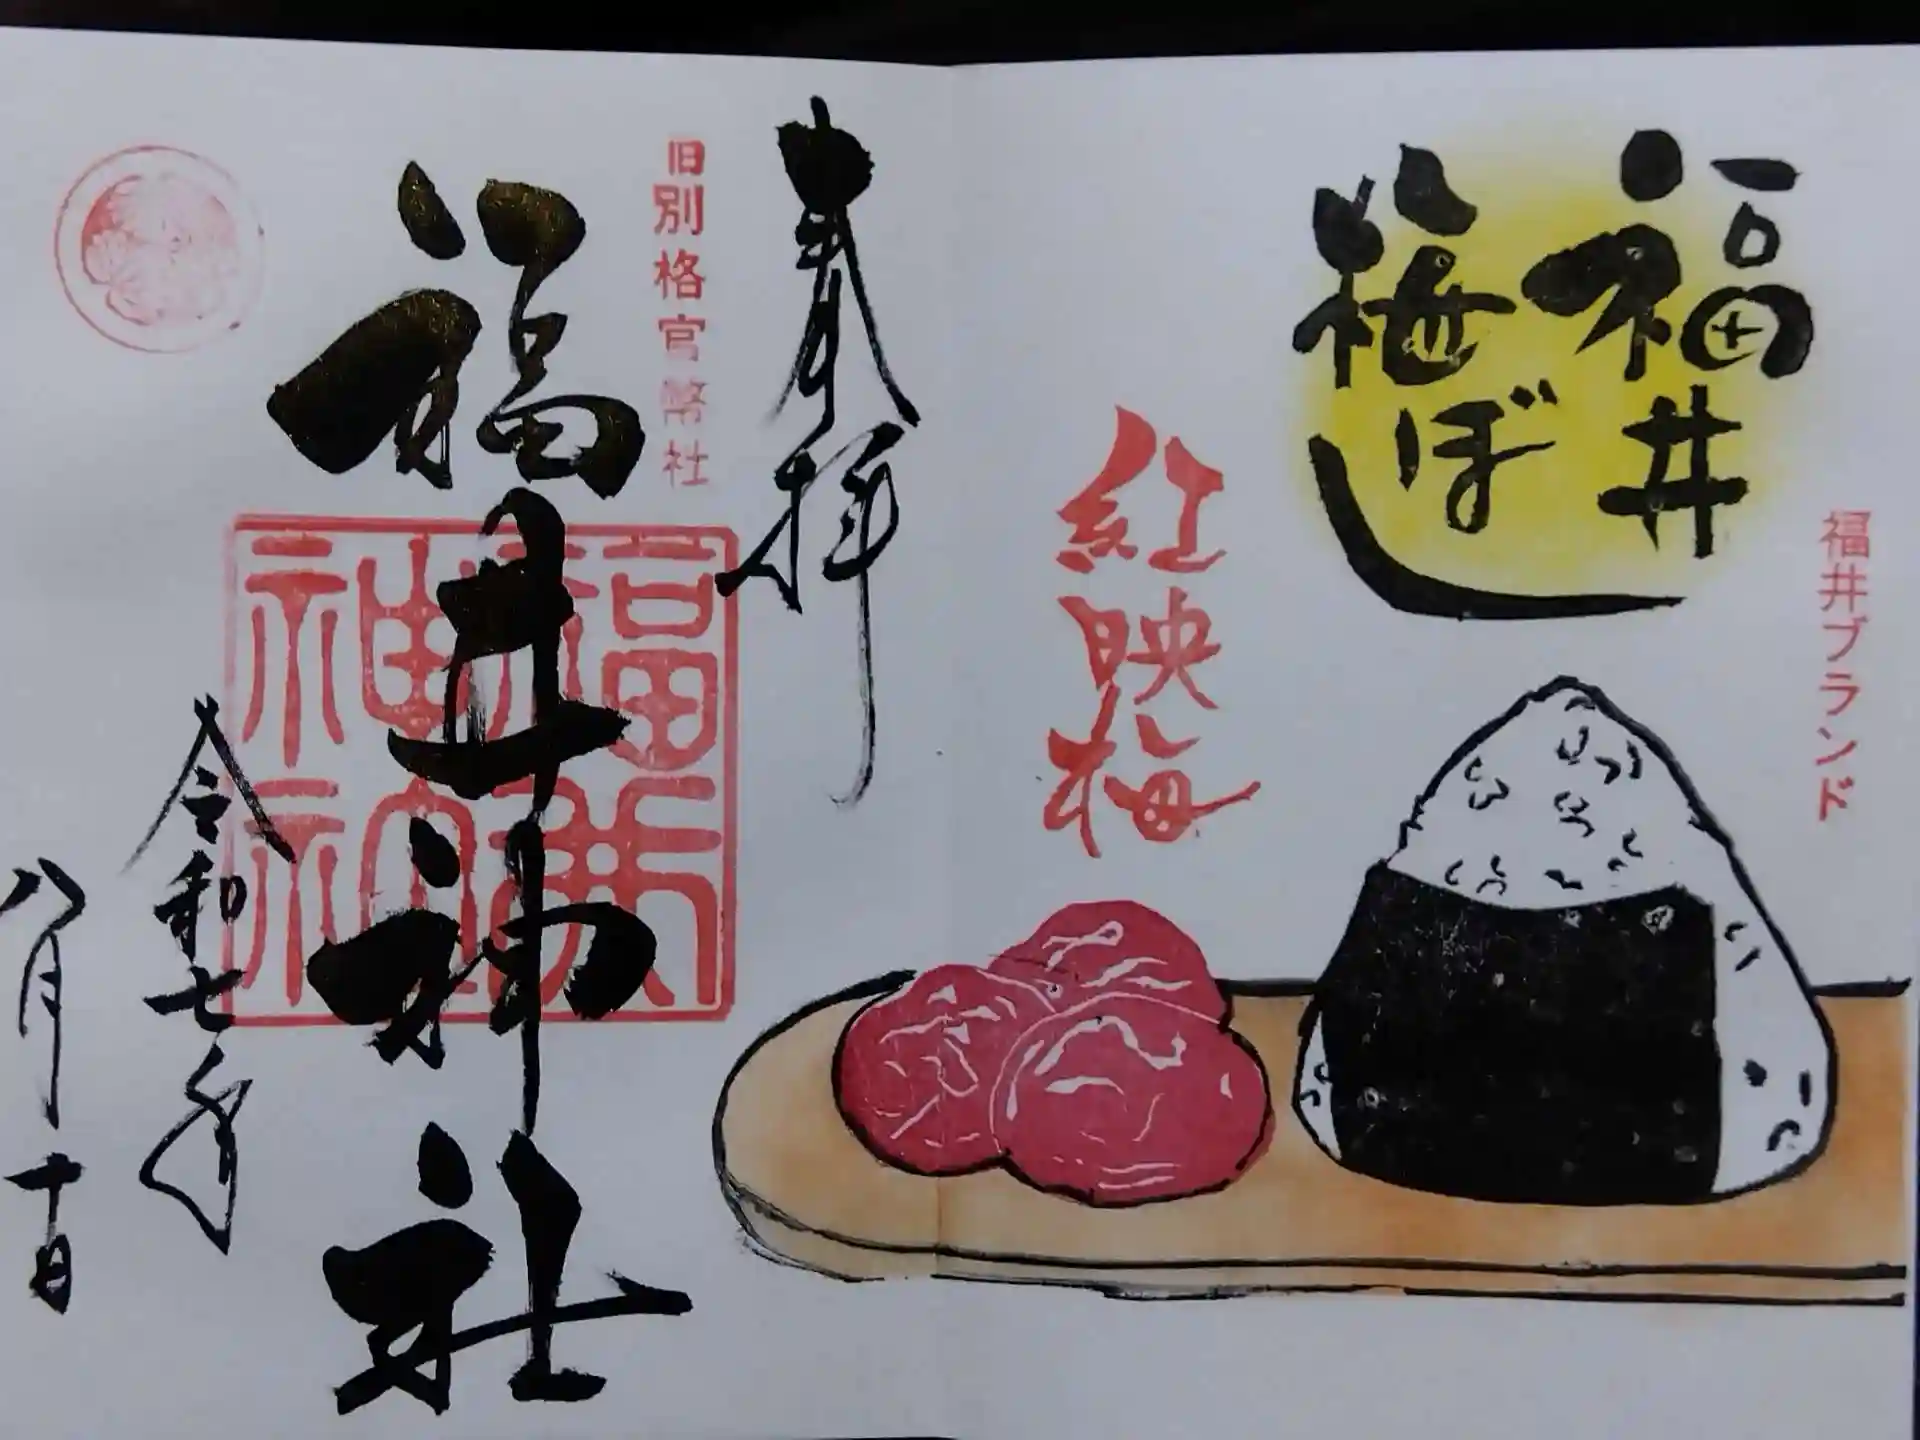 福井ブランド
福井
梅ぼし
紅映梅
奉拝
旧別格官幣社
福井神社
福井
神社
令和七年
八月十日